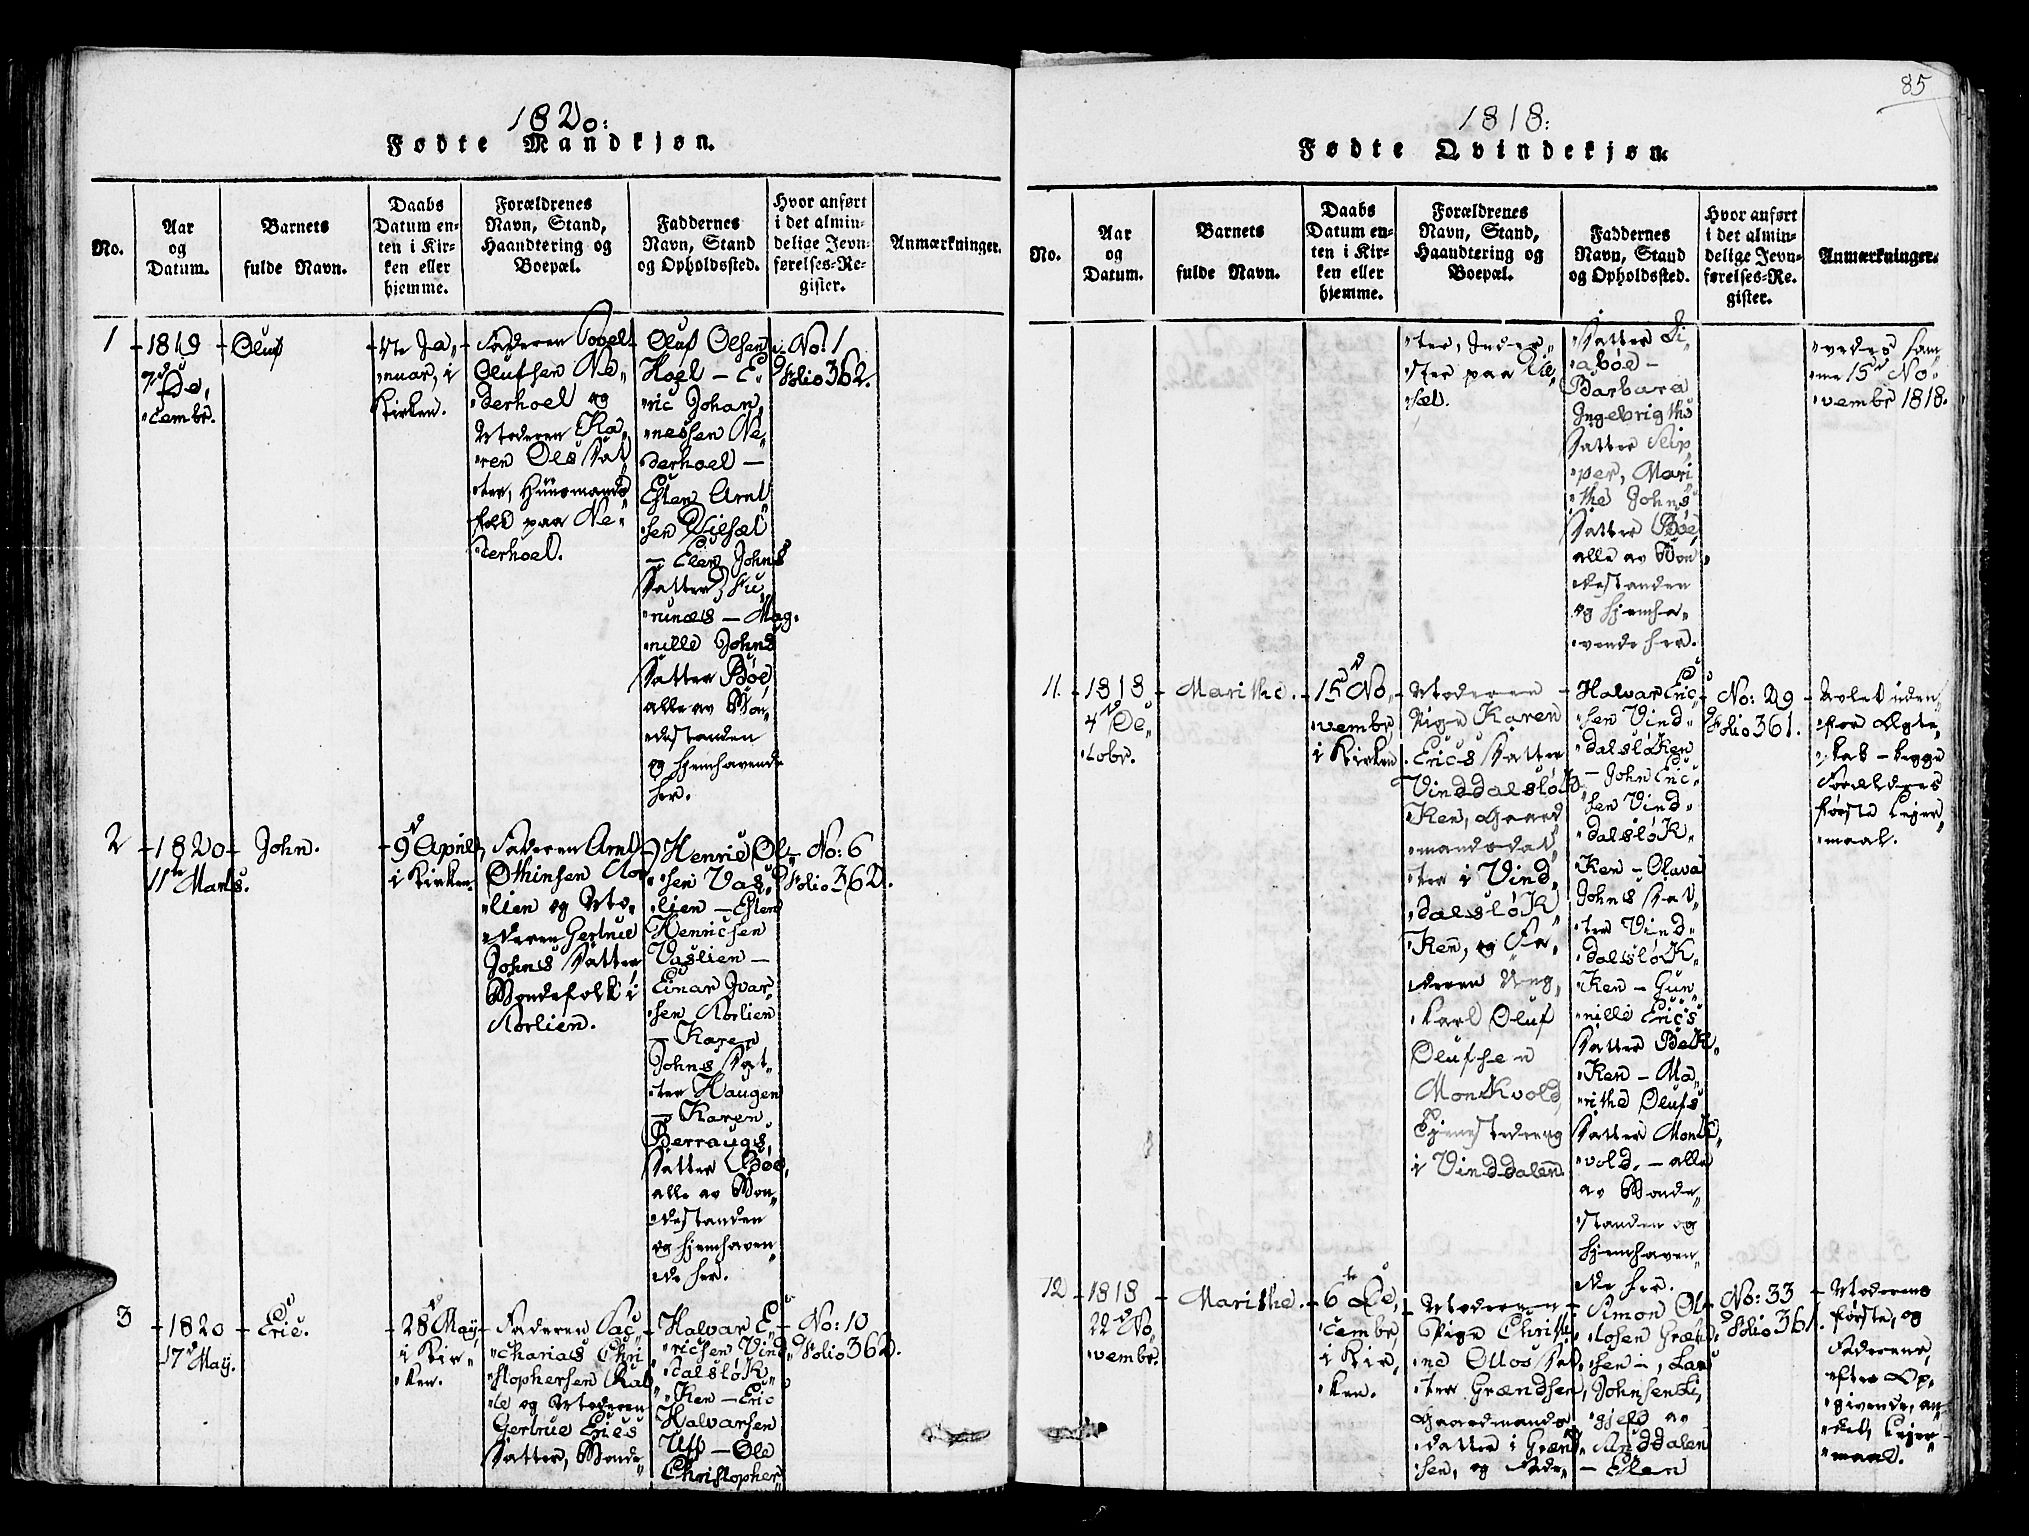 1820:
Fødte Mandkjøn.
No.
Aar
og
Datum.
Barnets
fulde Navn.
Daabs
Datum en-
ten i Kir-
ken eller
hjemme.
Forældrenes
Navn, Stand,
Haandtering og
Boepæl.
Faddernes
Navn, Stand
og Opholdssted.
Hvor anført
i det almin-
delige Jevn-
førelses-Re-
gister.
Anmærkninger.
1
1819
7d De,
"cembr.
Oluf
Ja,
"nuar, i
Kirken.
Faderen Povel
Olufsen Ne,
"derhoel og
Moderen Ka,
"ren Ols Dat,
"ter, Huusmands
folk paa Ne,
"derhoel.
Oluf Olsen
Hoel – E,
"ric Johan,
"nessen Ne,
"derhoel –
Esten Arnt,
"sen
– Elen Johns
Datter Fu,
"runæs – Mag,
"nille Johns
Datter Bøe
alle av Bon,
"destanden
og hjemhavende
her.
No: 1
Folio 362.
2
1820
11te Marts.
John.
9d April
i Kirken.
Faderen Arnt
Othinsen Aor,
"lien og Mo,
"deren Gertrue
Johns Datter
Bondefolk i
Aorlien.
Henric Ol,
"sen Vas,
"lien – Esten
Henricsen
Vaslien –
Einar Ivar,
"sen Aorlien
– Karen
Johns Dat,
"ter Haugen
– Karen
Berraugs,
Datter Bøe,
alle av Bon,
"destanden
og hjemhaven,
"de her.
No: 6
Folio 362.
3
1820
17d May.
Eric.
28d May
i Kir,
"ken.
Faderen Sac,
"charias Chri
"stophersen
og Moderen
Gertrue Erics
Datter, Bonde,
Halvar E,
"ricsen Vind,
"dalsløK,
"Ken – Eric
Halvarsen
– Ole
Christopher,
No: 10
Folio 362.
85
1818:
Fødte Qvindekjøn.
No.
Aar
og
Datum.
Barnets
fulde Navn.
Daabs
Datum en-
ten i Kir-
ken eller
hjemme.
Forældrenes
Navn, Stand,
Haandtering og
Boepæl.
Faddernes
Navn, Stand
og Opholdssted.
Hvor anført
i det almin-
delige Jevn-
førelses-Re-
gister.
Anmærkninger.
"ter, Inder,
"ster paa
Datter Li,
"abøe –
Barbara
Ingebrigths
Datter Slip,
"per, Mari,
"the Johns,
Datter Bøe,
alle av Bon,
"destanden
og hjemha,
"vende her.
"vedes sam,
"me 15d No,
"vembr 1818.
11.
1818
4d Oc,
"tobr.
Marithe.
15d No,
"vembr,
i Kirken
Moderen
Pige Karen
Erics Datter
VinddalsløK,
"Ken, Gaard,
"mandsdat,
"ter i Vind,
"dalsløK,
"Ken, og Fa,
"deren Ung,
"karl Oluf
Olufsen
MonKvold,
Tjenestedreng
i Vinddalen.
Halvar Eric,
"sen Vind,
"dalsløKen
– John Eric,
"sen Vind,
"dalsløK,
"Ken – Olava
Johns Dat,
"ter Vind,
"dalsløK,
"Ken – Gun,
"nille Erics
Datter BeK,
"Ken – Ma,
"rithe Olufs
Datter MonK,
"vold, – alle
av Bonde,
"standen og
hjemhaven,
"de her.
No: 29
Folio 361.
Avlet uden,
"for Ægte,
"skab – begge
Forældres
første Leier,
"maal.
12
1818
22d No,
"vembr.
Marithe.
6te De,
"cembr,
i Kir,
"ken.
Moderen
Pige Christi,
"ne Ottos Dat,
"ter Grændsen,
Gaardmands,
"datter i Græn,
"sen, og Fade,
Simon Ol,
Johnsen
av
– Esten
No: 33
Folio 361.
Moderens
første, og
Faderens,
efter Op,
"givende, an,
"det, Leier,
"maal.